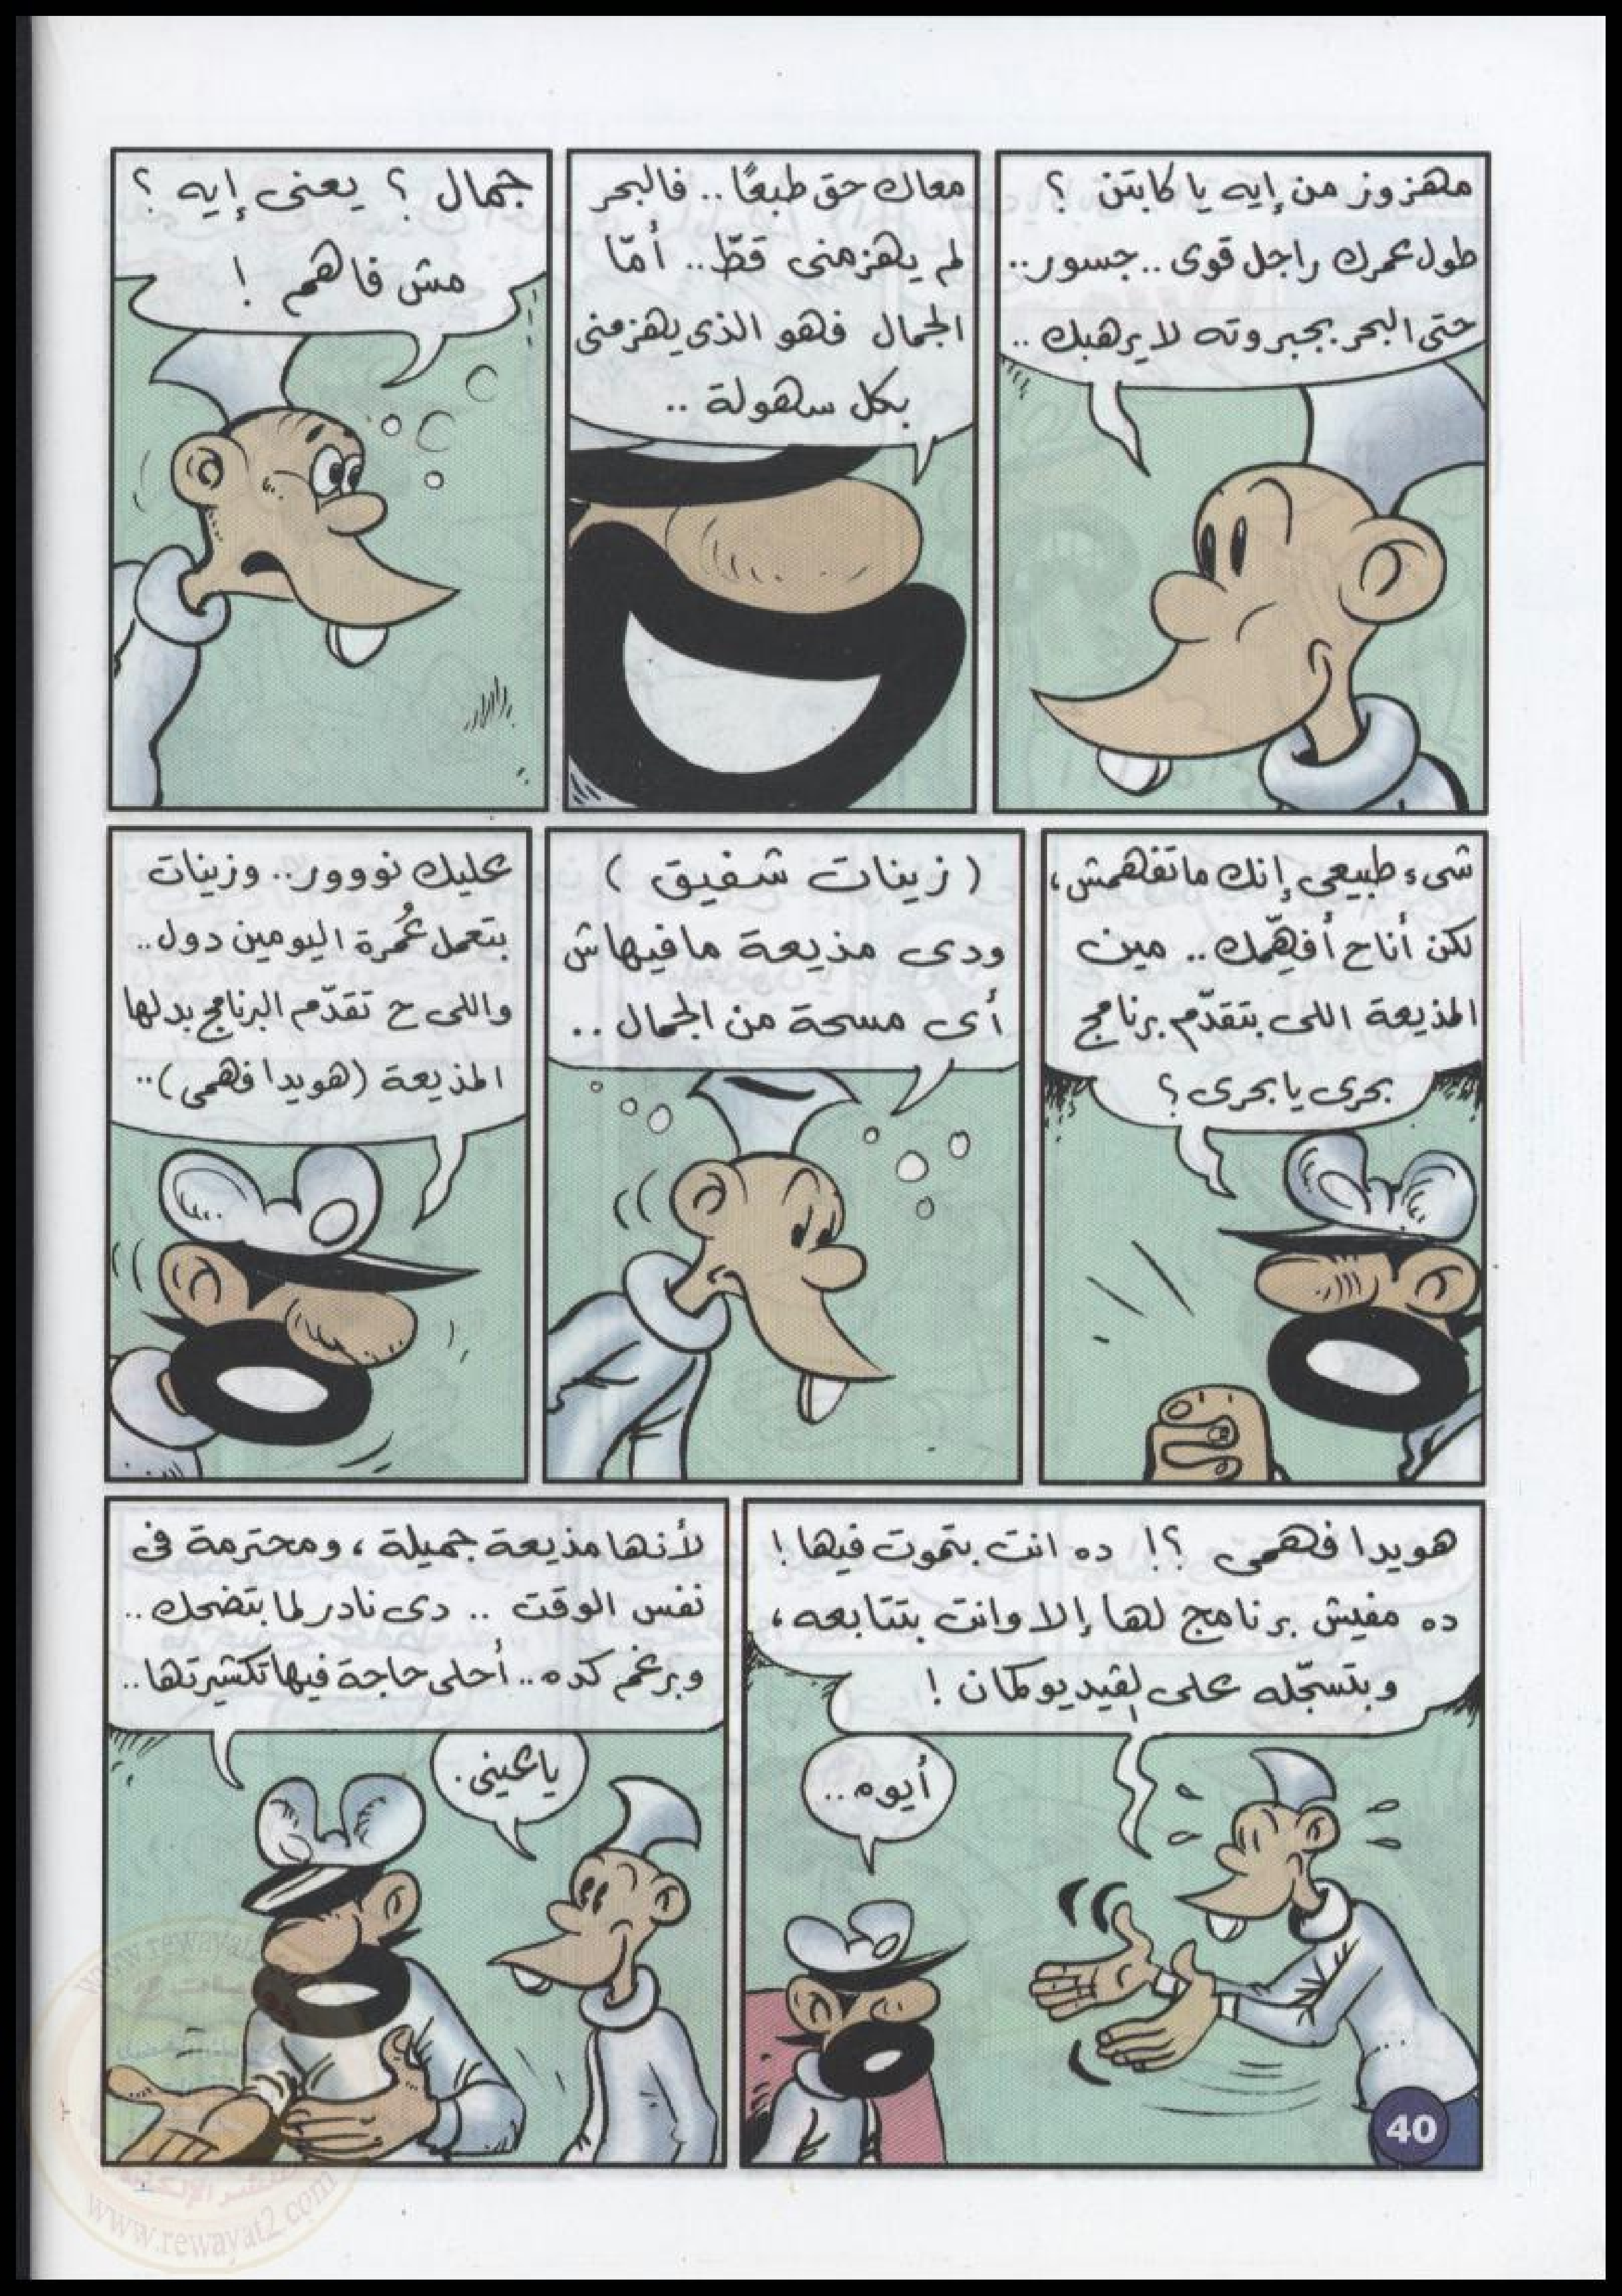 مهزوز من إيه يا كابتن ؟
طول عمرك راجل قوى .. جسور ..
حتى البحر بجبروته لا يرهبك ..
معاك حق طبعًا .. فالبحر
لم يهزمنى قطّ .. أمّا
الجمال فهو الذى يهزمنى
بكل سهولة ..
جمال ؟ يعنى إيه ؟
مش فاهم !
شىء طبيعى إنك ماتفهمش ،
لكن أناح أفهّمك .. مين
المذيعة اللى بتقدّم برنامج
بحرى يا بحرى ؟
( زينات شفيق )
ودى مذيعة مافيهاش
أى مسحة من الجمال ..
عليك نووور .. وزينات
بتعمل عُمرة اليومين دول ..
واللى ح تقدّم البرنامج بدلها
المذيعة (هويدا فهمى) ..
هويدا فهمى ؟! ده انت بتموت فيها !
ده مفيش برنامج لها إلا وانت بتتابعه ،
وبتسجّله على الڤيديو كمان !
أيوه ..
لأنها مذيعة جميلة ، ومحترمة فى
نفس الوقت .. دى نادر لما بتضحك ..
وبرغم كده .. أحلى حاجة فيها تكشيرتها ..
ياعينى .
40
www.rewayat2.com